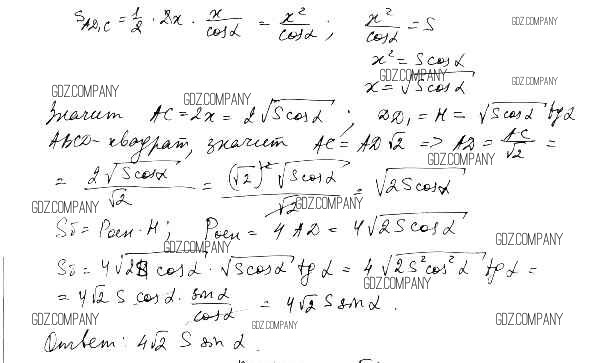 S_{AD₁C} = 1/2 · 2x · x/cosα = x²/cosα ; x²/cosα = S
GDZ.COMPANY
x² = S cosα
GDZ.COMPANY
x = √(S cosα)
GDZ.COMPANY
GDZ.COMPANY
Значит AC = 2x = 2√(S cosα) ; DD₁ = H = √(S cosα) tgα
ABCD - квадрат, значит AC = AD√2 => AD = AC/√2 =
GDZ.COMPANY
= 2√(S cosα)/√2 = (√2)²√(S cosα)/√2 = √(2S cosα)
GDZ.COMPANY GDZ.COMPANY
Sб = Pосн · H ; Pосн = 4AD = 4√(2S cosα)
GDZ.COMPANY GDZ.COMPANY
Sб = 4√(2S cosα) · √(S cosα) tgα = 4√(2S² cos²α) tgα =
GDZ.COMPANY
= 4√2 S cosα · sinα/cosα = 4√2 S sinα .
GDZ.COMPANY GDZ.COMPANY GDZ.COMPANY
Ответ: 4√2 S sinα .